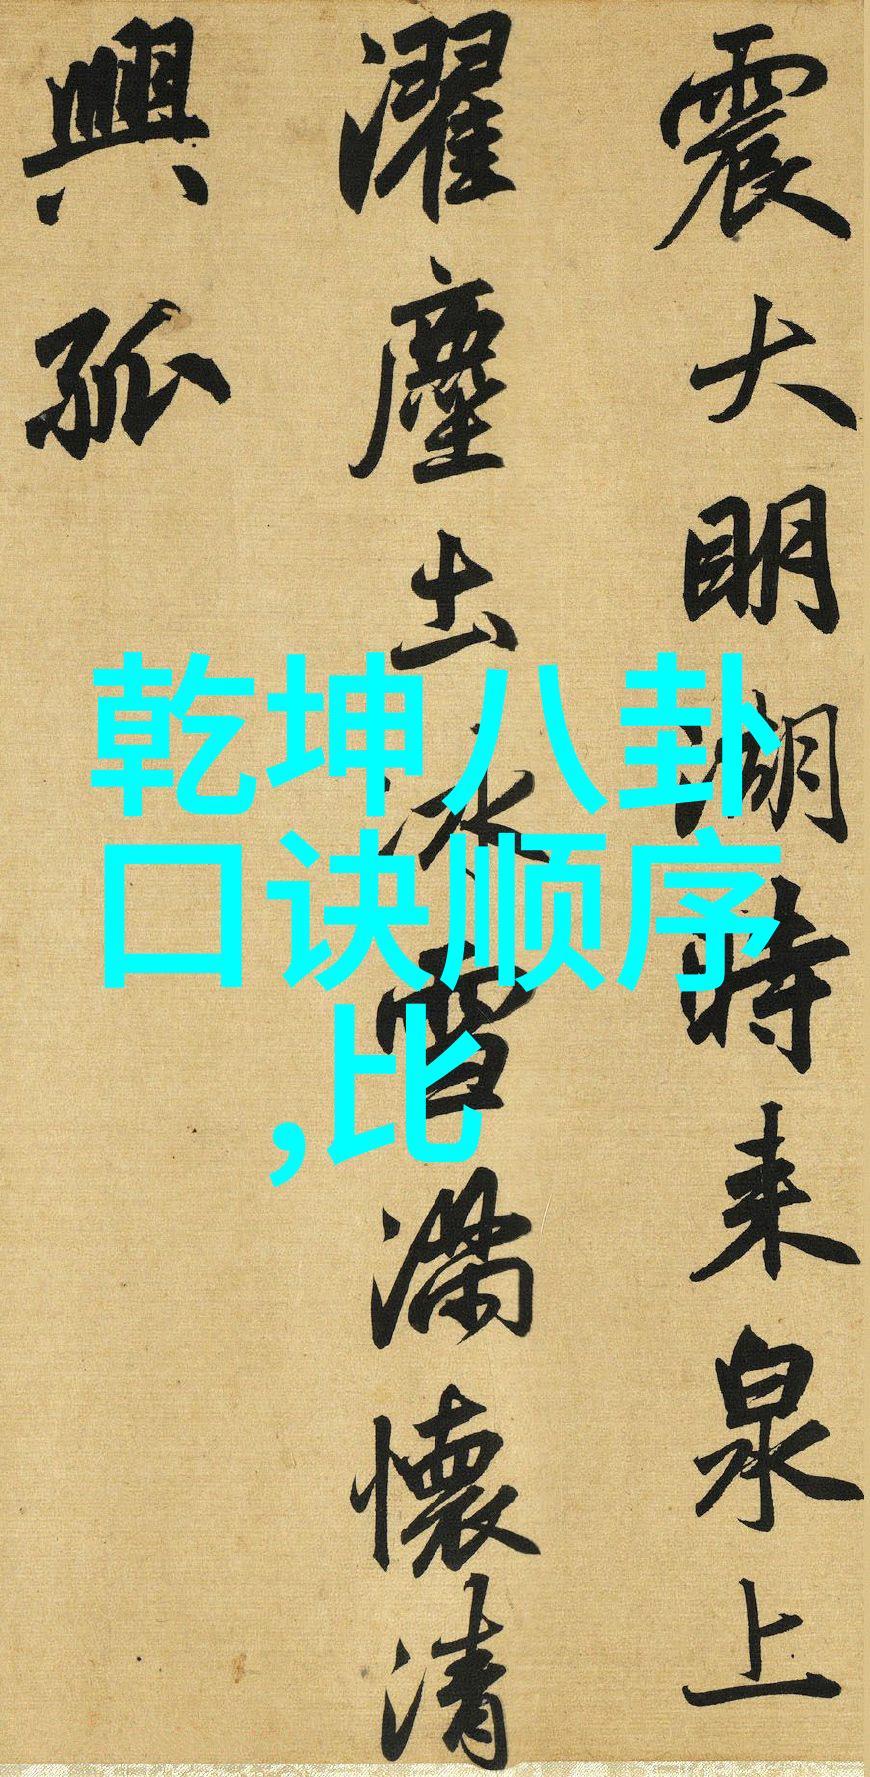 震大明湖時来泉上
濯塵土冰雪滿懷清
興孤
乾坤八卦
口诀顺序
,比